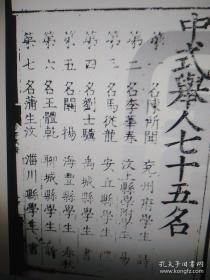 中式舉人七十五名
第一名陳所聞 兗州府學生 詩
第二名李華春 汶上縣學附學生 易
第三名馬從龍 安丘縣學生
第四名劉士驥 禹城縣學生 書
第五名關揚 海豐縣學生 春
第六名王體乾 聊城縣學生
第七名蒲生汶 淄川縣學生 書
孔夫子旧书网